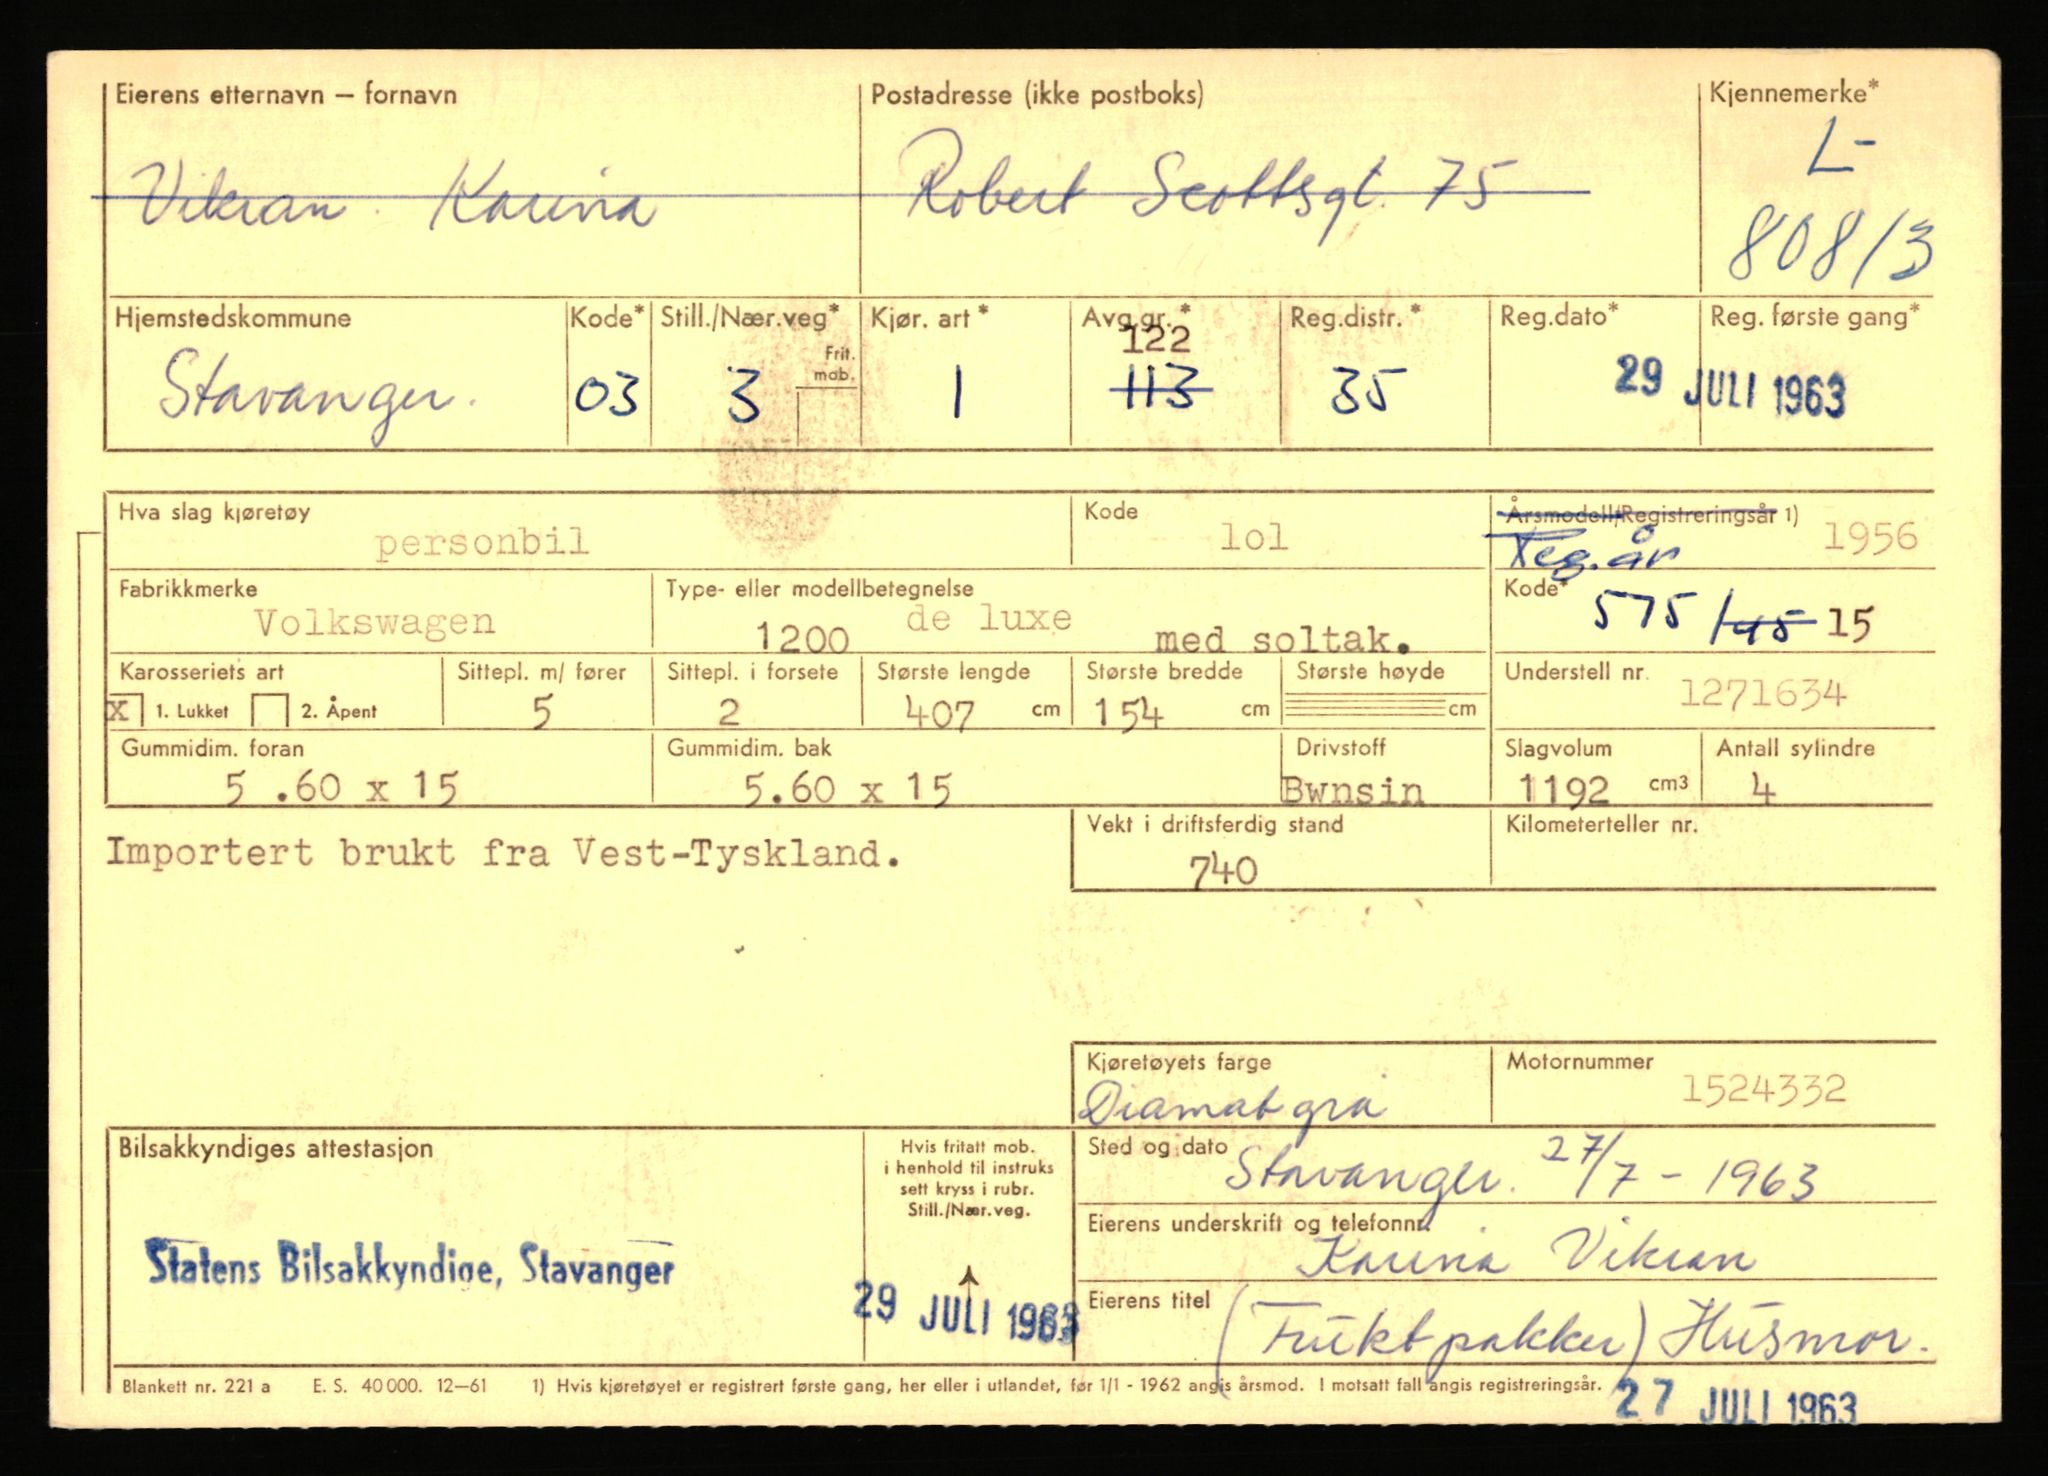 Eierens etternavn — fornavn Postadresse (ikke postboks) Kjennemerke*
Vikran Karina Robert Scottsgt. 75 L-
80813
Hjemstedskommune Kode* Still./Nær.veg* Kjør. art * Avg.gr. * Reg.distr. * Reg.dato* Reg. første gang*
Frit. mob. 122
Stavanger. 03 3 1 113 35 29 JULI 1963
Hva slag kjøretøy Kode Årsmodell/Registreringsår 1)
personbil lol Reg.år 1956
Fabrikkmerke Type- eller modellbetegnelse Kode*
Volkswagen 1200 de luxe med soltak. 575 /45 15
Karosseriets art Sittepl. m/ fører Sittepl. i forsete Største lengde Største bredde Største høyde Understell nr.
X 1. Lukket 2. Åpent 5 2 407 cm 154 cm cm 1271634
Gummidim. foran Gummidim. bak Drivstoff Slagvolum Antall sylindre
5 .60 x 15 5.60 x 15 Bwnsin 1192 cm3 4
Importert brukt fra Vest-Tyskland.
Vekt i driftsferdig stand Kilometerteller nr.
740
Kjøretøyets farge Motornummer
Diamatgrå 1524332
Bilsakkyndiges attestasjon
Hvis fritatt mob.
i henhold til instruks
sett kryss i rubr.
Still./Nær.veg.
Sted og dato
Stavanger. 27/7 - 1963
Eierens underskrift og telefonnr.
Karina Vikran
Statens Bilsakkyndige, Stavanger
29 JULI 1963
Eierens titel
(Fruktpakker) Husmor.
Blankett nr. 221 a E. S. 40 000. 12—61 1) Hvis kjøretøyet er registrert første gang, her eller i utlandet, før 1/1 - 1962 angis årsmod. I motsatt fall angis registreringsår.
27 JULI 1963